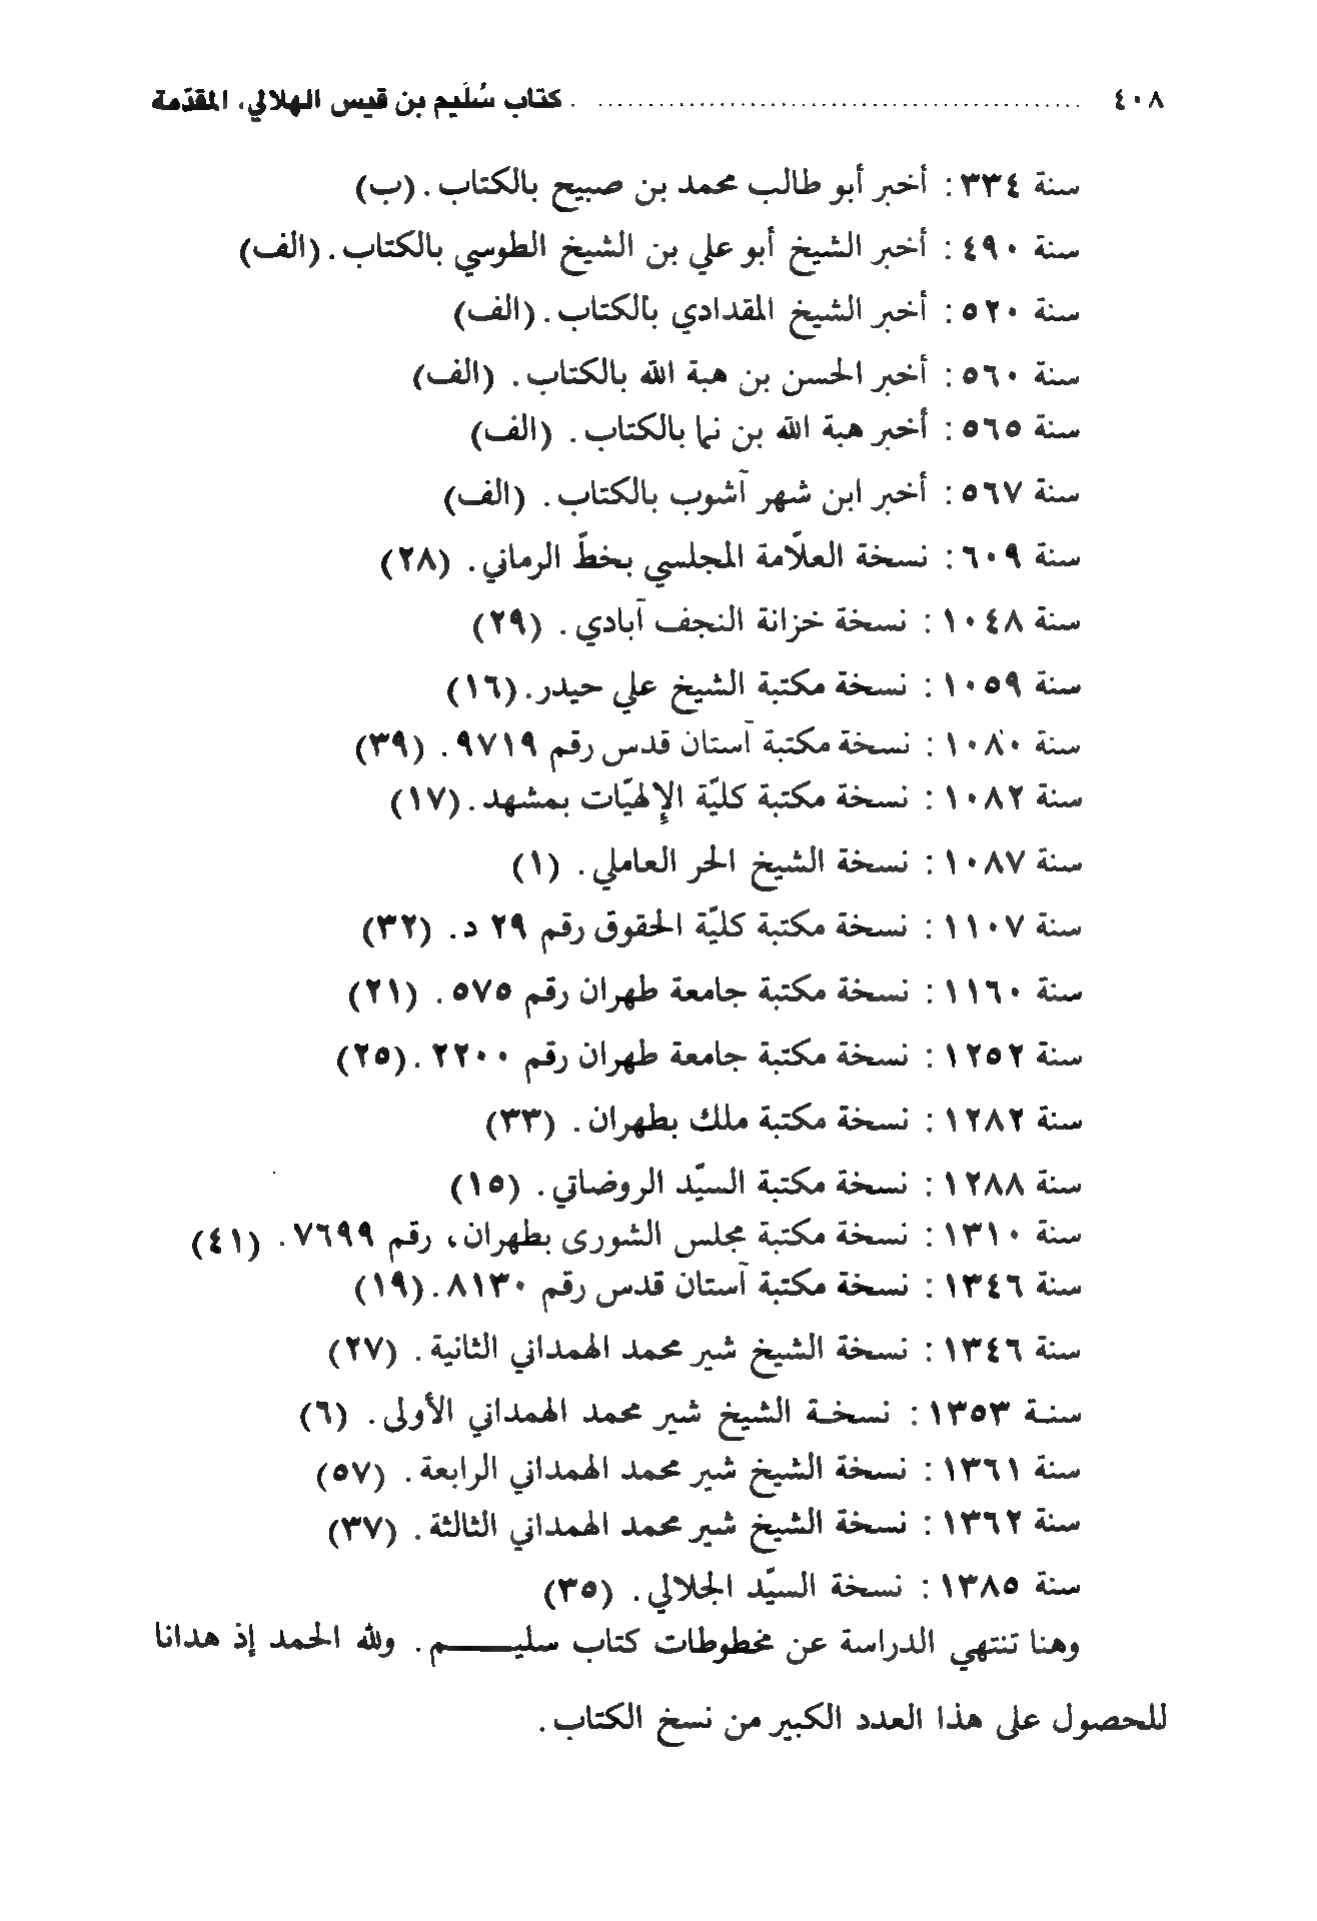 ٤٠٨ ........ كتاب سُلَيم بن قيس الهلالي، المقدّمة
سنة ٣٣٤ : أخبر أبو طالب محمد بن صبيح بالكتاب . (ب)
سنة ٤٩٠ : أخبر الشيخ أبو علي بن الشيخ الطوسي بالكتاب . (الف)
سنة ٥٢٠ : أخبر الشيخ المقدادي بالكتاب . (الف)
سنة ٥٦٠ : أخبر الحسن بن هبة الله بالكتاب . (الف)
سنة ٥٦٥ : أخبر هبة الله بن نما بالكتاب . (الف)
سنة ٥٦٧ : أخبر ابن شهر آشوب بالكتاب . (الف)
سنة ٦٠٩ : نسخة العلّامة المجلسي بخطّ الرماني . (٢٨)
سنة ١٠٤٨ : نسخة خزانة النجف آبادي . (٢٩)
سنة ١٠٥٩ : نسخة مكتبة الشيخ علي حيدر . (١٦)
سنة ١٠٨٠ : نسخة مكتبة آستان قدس رقم ٩٧١٩ . (٣٩)
سنة ١٠٨٢ : نسخة مكتبة كليّة الإلهيّات بمشهد . (١٧)
سنة ١٠٨٧ : نسخة الشيخ الحر العاملي . (١)
سنة ١١٠٧ : نسخة مكتبة كليّة الحقوق رقم ٢٩ د . (٣٢)
سنة ١١٦٠ : نسخة مكتبة جامعة طهران رقم ٥٧٥ . (٢١)
سنة ١٢٥٢ : نسخة مكتبة جامعة طهران رقم ٢٢٠٠ . (٢٥)
سنة ١٢٨٢ : نسخة مكتبة ملك بطهران . (٣٣)
سنة ١٢٨٨ : نسخة مكتبة السيّد الروضاتي . (١٥)
سنة ١٣١٠ : نسخة مكتبة مجلس الشورى بطهران، رقم ٧٦٩٩ . (٤١)
سنة ١٣٤٦ : نسخة مكتبة آستان قدس رقم ٨١٣٠ . (١٩)
سنة ١٣٤٦ : نسخة الشيخ شير محمد الهمداني الثانية . (٢٧)
سنـة ١٣٥٣ : نسخـة الشيخ شير محمد الهمداني الأولى . (٦)
سنة ١٣٦١ : نسخة الشيخ شير محمد الهمداني الرابعة . (٥٧)
سنة ١٣٦٢ : نسخة الشيخ شير محمد الهمداني الثالثة . (٣٧)
سنة ١٣٨٥ : نسخة السيّد الجلالي . (٣٥)
وهنا تنتهي الدراسة عن مخطوطات كتاب سليـــــم . ولله الحمد إذ هدانا
للحصول على هذا العدد الكبير من نسخ الكتاب .